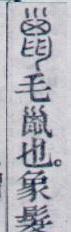 巤毛巤也。象髮